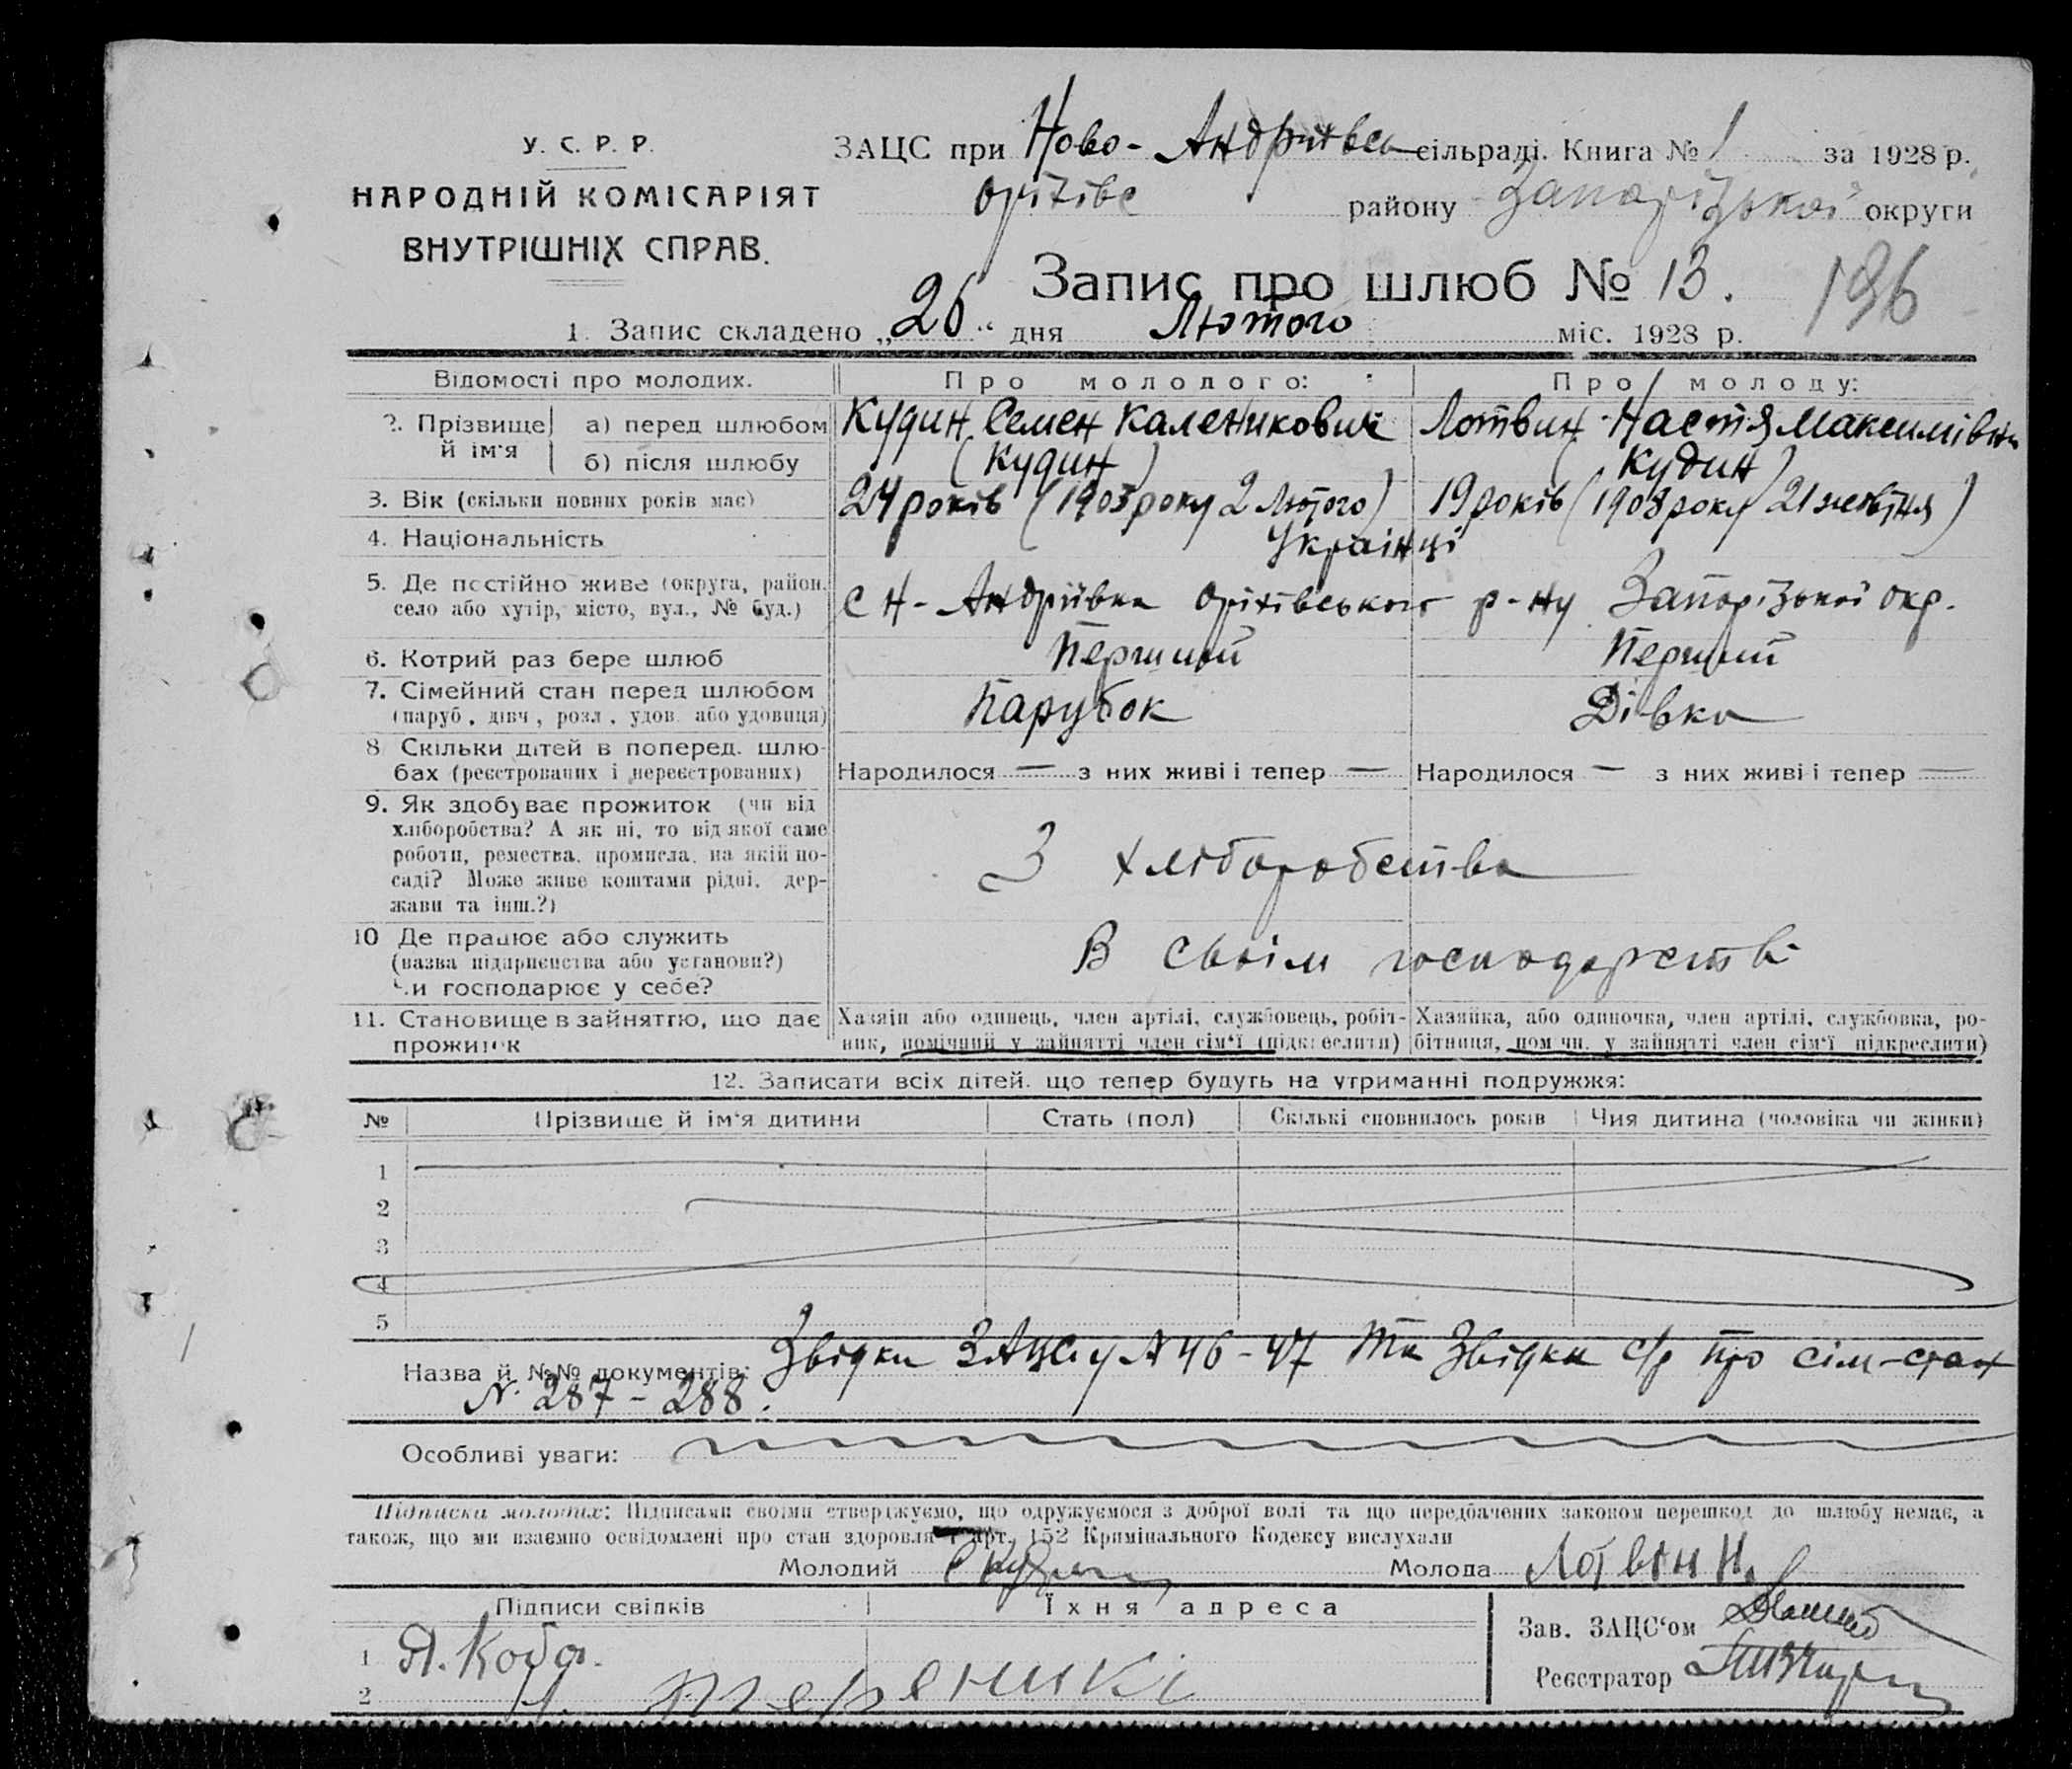 У. С. Р. Р.
НАРОДНІЙ КОМІСАРІЯТ
ВНУТРІШНІХ СПРАВ.
ЗАЦС при Ново-Андріївсь сільраді. Книга № 1 за 1928 р.
Оріхівс району Запорізької округи
Запис про шлюб № 13. 196
1. Запис складено „26“ дня Лютого міс. 1928 р.
Відомості про молодих. Про молодого: Про молоду:
2. Прізвище й ім'я
а) перед шлюбом Кудин Семен Каленикович Лотвин Настя Максимівна
б) після шлюбу (Кудин) (Кудин)
3. Вік (скільки повних років має) 24 років (1903 року 2 Лютого) 19 років (1908 року 21 жовтня)
4. Національність Українці
5. Де постійно живе (округа, район, село або хутір, місто, вул., № буд.) с Н-Андріївка Оріхівського р-ну Запорізької окр.
6. Котрий раз бере шлюб Перший Перший
7. Сімейний стан перед шлюбом Парубок Дівка
(паруб, дівч, розл, удов. або удовиця)
8 Скільки дітей в поперед. шлю-
бах (реєстрованих і нереєстрованих) Народилося — з них живі і тепер — Народилося — з них живі і тепер —
9. Як здобуває прожиток (чи від
хліборобства? А як ні, то від якої саме
роботи, ремества, промисла, на якій по-
саді? Може живе коштами рідні, дер-
жави та інш.?)
З хліборобства
10 Де працює або служить
(назва підприємства або установи?)
Чи господарює у себе?
В своїм господарстві
11. Становище в зайняттю, що дає
прожиток
Хазяїн або одинець, член артілі, службовець, робіт-
ник, помічний у зайнятті член сім'ї (підкреслити)
Хазяйка, або одиночка, член артілі, службовка, ро-
бітниця, помічн. у зайнятті член сім'ї підкреслити)
12. Записати всіх дітей. що тепер будуть на утриманні подружжя:
№ Прізвище й ім'я дитини Стать (пол) Скількі сповнилось років Чия дитина (чоловіка чи жінки)
1
2
3
4
5
Назва й №№ документів: Звідки ЗАЦСу № 46-47 та Звідки с/р про сім-стан
№ 287-288.
Особливі уваги:
Підписка молодих: Підписами своїми стверджуємо, що одружуємося з доброї волі та що передбачених законом перешкод до шлюбу немає, а
також, що ми взаємно освідомлені про стан здоровля і арт. 152 Кримінального Кодексу вислухали
Молодий С Кудин Молода Лотвин Н.
Підписи свідків Їхня адреса
Зав. ЗАЦС'ом
1 Я. Коба.
Реєстратор
2